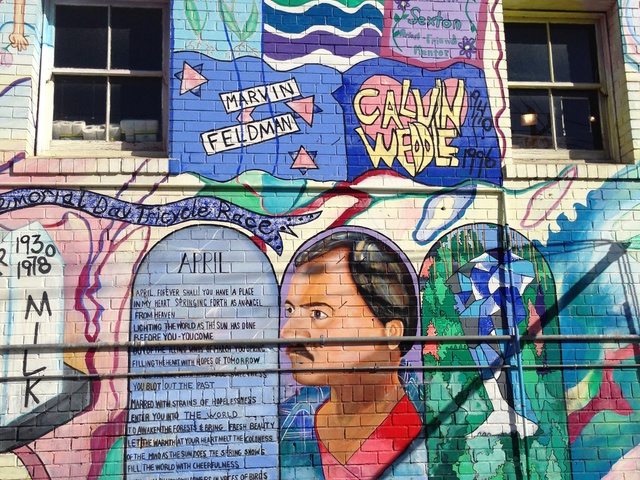 Sexton
Artist-Friend
Mentor
MARVIN
FELDMAN
CALVIN
WEDDLE
1996
Memorial Day Tricycle Race
1930
1978
MILK
APRIL
APRIL, FOREVER SHALL YOU HAVE A PLACE
IN MY HEART SPRINGING FORTH AS AN ANGEL
FROM HEAVEN
LIGHTING THE WORLD AS THE SUN HAS DONE
BEFORE YOU - YOU COME
FILLING THE HEART WITH HOPES OF TOMORROW
YOU BLOT OUT THE PAST
MARRED WITH STRAINS OF HOPELESSNESS
ENTER YOU INTO THE WORLD
TO AWAKEN THE FORESTS & BRING FRESH BEAUTY
LET THE WARMTH AT YOUR HEART MELT THE COLDNESS
OF THE MIND AS THE SUN DOES THE SPRING SNOWS
FILL THE WORLD WITH CHEERFULNESS
VOICES OF BIRDS